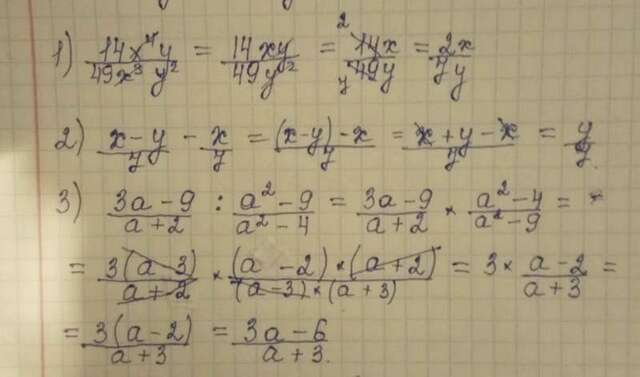 1) 14x⁴y/49x³y² = 14xy/49y² = 2 14x/7 49y = 2x/7y
2) x-y/7 - x/7 = (x-y)-x/7 = x+y-x/7 = y/7.
3) 3a-9/a+2 : a²-9/a²-4 = 3a-9/a+2 × a²-4/a²-9 =
= 3(a-3)/a+2 × (a-2)×(a+2)/(a-3)×(a+3) = 3 × a-2/a+3 =
= 3(a-2)/a+3 = 3a-6/a+3.